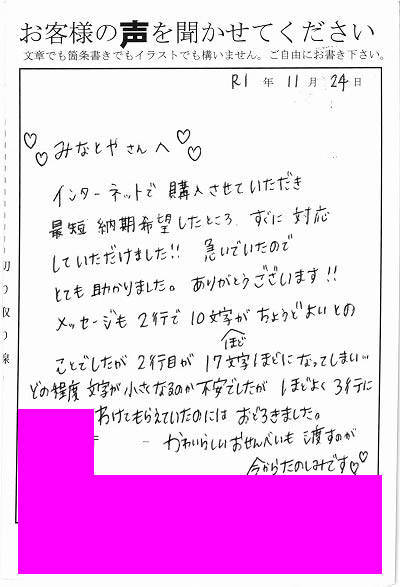 お客様の声を聞かせてください
文章でも箇条書きでもイラストでも構いません。ご自由にお書き下さい。
R1 年 11 月 24 日
♡♡みなとやさんへ♡♡
インターネットで 購入させていただき
最短 納期希望したところ、すぐに 対応
していただけました!! 急いでいたので
とても助かりました。ありがとうございます!!
メッセージも 2行で 10文字がちょうどよいとの
ほど
ことでしたが 2行目が 17文字ほどになってしまい…
どの程度 文字が小さくなるのか不安でしたが ほどよく 3行に
わけてもらえていたのには おどろきました。
かわいらしいおせんべいも 渡すのが
今からたのしみです♡♡
切り取り線